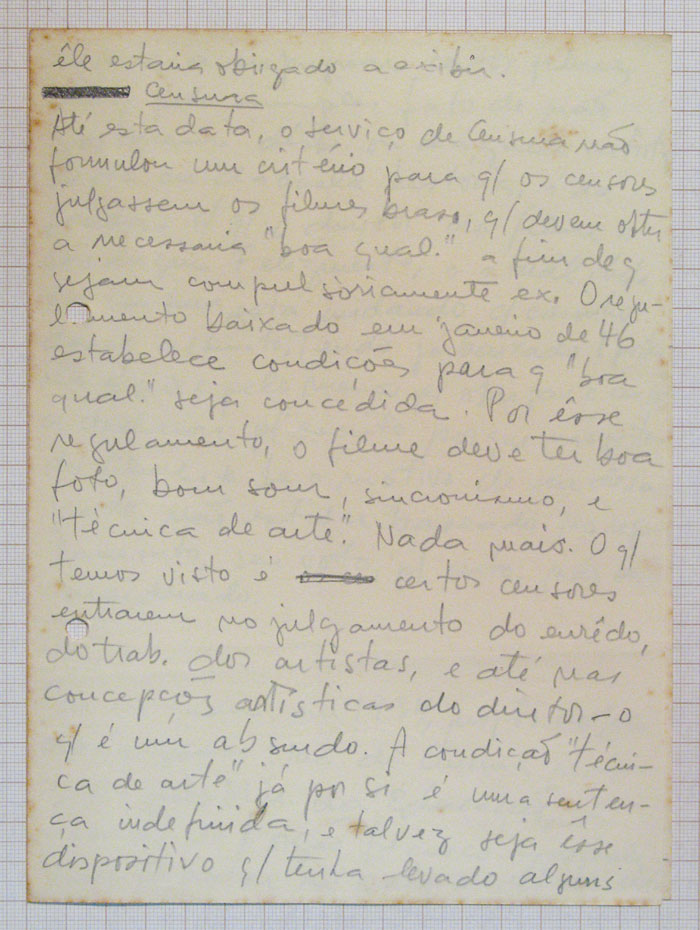 êle estaria obrigado a exibir.
Censura
Até esta data, o serviço de Censura não
formulou um critério para q/ os censores
julgassem os filmes bras., q/ devem obter
a necessaria "boa qual." a fim de q
sejam compulsòriamente ex. O regu-
lamento baixado em janeiro de 46
estabelece condições para q "boa
qual." seja concedida. Por êsse
regulamento, o filme deve ter boa
foto, bom som, sincronismo, e
"técnica de arte". Nada mais. O q/
temos visto é certos censores
entrarem no julgamento do enrêdo,
do trab. dos artistas, e até nas
concepções artísticas do diretor - o
q/ é um absurdo. A condição "técni-
ca de arte" já por si é uma senten-
ça indefinida, e talvez seja êsse
dispositivo q/ tenha levado alguns